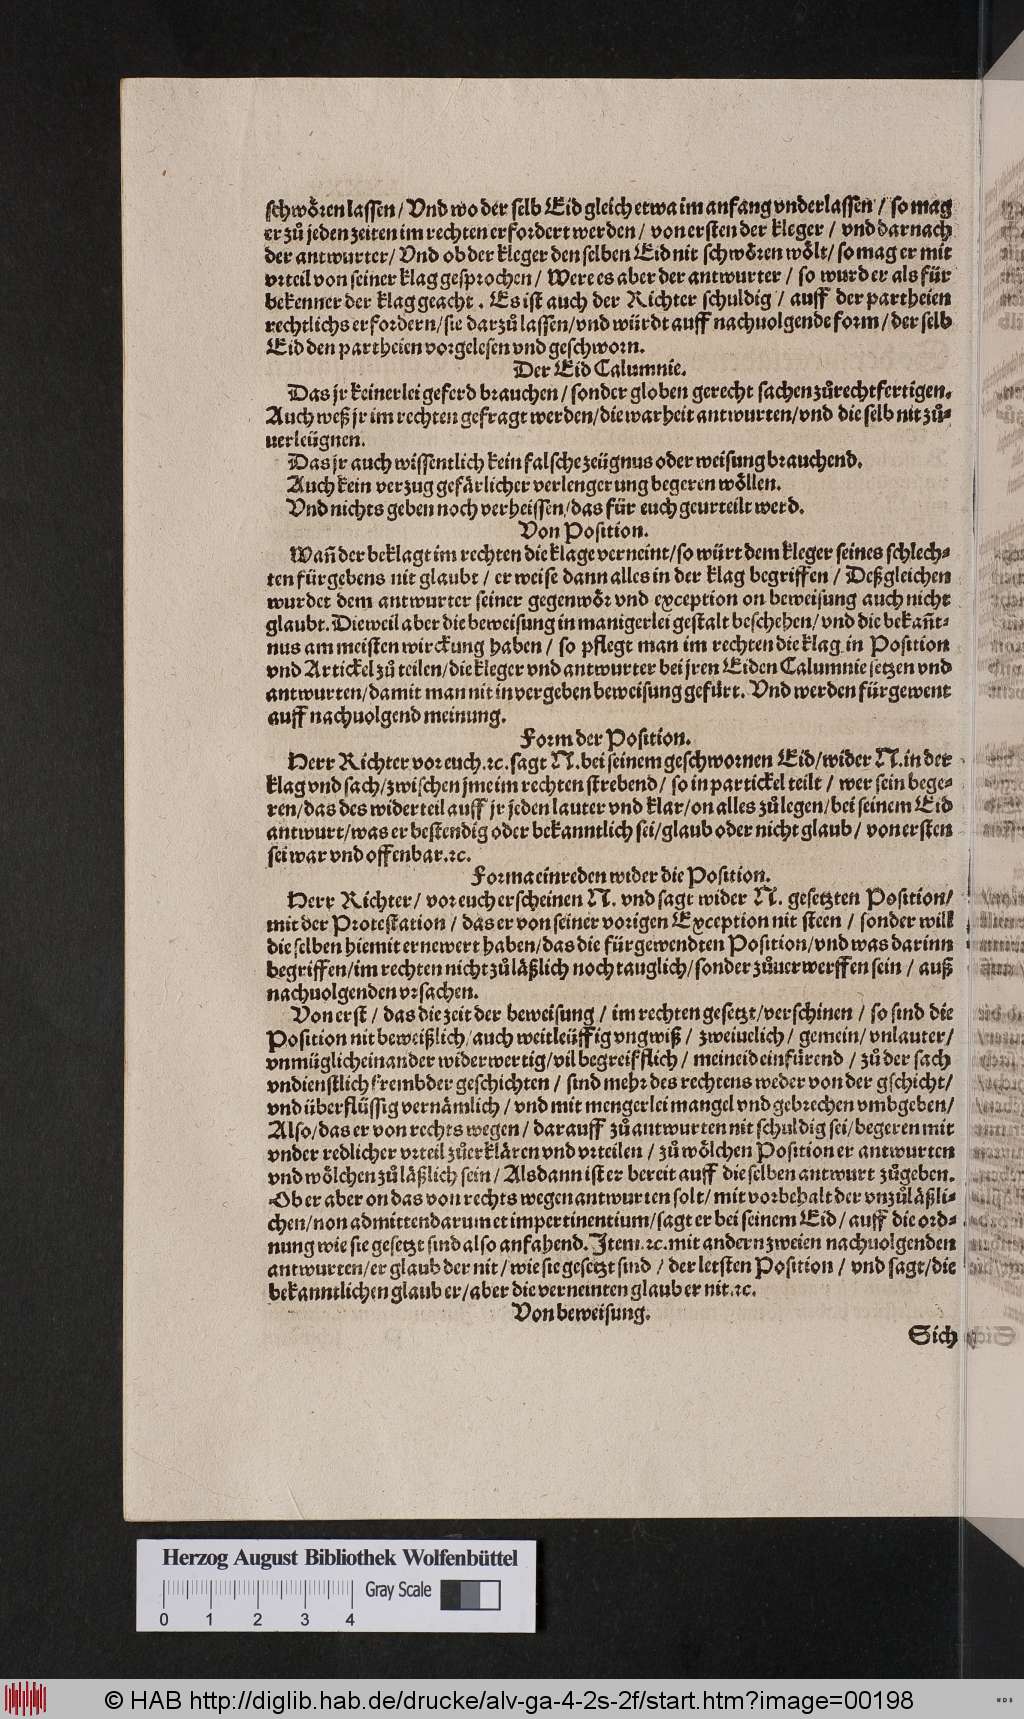 schwören lassen / Vnd wo der selb Eid gleich etwa im anfang vnderlassen / so mag
er zů jeden zeiten im rechten erfordert werden / von ersten der kleger / vnd darnach
der antwurter / Vnd ob der kleger den selben Eid nit schwören wölt / so mag er mit
vrteil von seiner klag gesprochen / Were es aber der antwurter / so wurd er als für
bekenner der klag geacht . Es ist auch der Richter schuldig / auff der partheien
rechtlichs erfordern / sie darzů lassen / vnd würdt auff nachuolgende form / der selb
Eid den partheien vorgelesen vnd geschworn.
Der Eid Calumnie.
Das jr keinerlei geferd brauchen / sonder globen gerecht sachen zůrechtfertigen.
Auch weß jr im rechten gefragt werden / die warheit antwurten / vnd die selb nit zů-
uerleügnen.
Das jr auch wissentlich kein falsche zeügnus oder weisung brauchend.
Auch kein verzug gefärlicher verlengerung begeren wöllen.
Vnd nichts geben noch verheissen / das für euch geurteilt werd.
Von Position.
Wañ der beklagt im rechten die klage verneint / so würt dem kleger seines schlech-
ten fürgebens nit glaubt / er weise dann alles in der klag begriffen / Deßgleichen
wurdet dem antwurter seiner gegenwör vnd exception on beweisung auch nicht
glaubt. Dieweil aber die beweisung in manigerlei gestalt beschehen / vnd die bekañt-
nus am meisten wirckung haben / so pflegt man im rechten die klag in Position
vnd Artickel zů teilen / die kleger vnd antwurter bei jren Eiden Calumnie setzen vnd
antwurten / damit man nit in vergeben beweisung gefürt. Vnd werden fürgewent
auff nachuolgend meinung.
Form der Position.
Herr Richter vor euch.ꝛc. sagt N. bei seinem geschwornen Eid / wider N. in der
klag vnd sach / zwischen jme im rechten strebend / so in partickel teilt / wer sein bege-
ren / das des widerteil auff jr jeden lauter vnd klar / on alles zůlegen / bei seinem Eid
antwurt / was er bestendig oder bekanntlich sei / glaub oder nicht glaub / von ersten
sei war vnd offenbar.ꝛc.
Forma einreden wider die Position.
Herr Richter / vor euch erscheinen N. vnd sagt wider N. gesetzten Position /
mit der Protestation / das er von seiner vorigen Exception nit steen / sonder will
die selben hiemit ernewert haben / das die fürgewendten Position / vnd was darinn
begriffen / im rechten nicht zůläßlich noch tauglich / sonder zůuerwerffen sein / auß
nachuolgenden vrsachen.
Von erst / das die zeit der beweisung / im rechten gesetzt / verschinen / so sind die
Position nit beweißlich / auch weitleüffig vngwiß / zweiuelich / gemein / vnlauter /
vnmüglich einander widerwertig / vil begreifflich / meineid einfürend / zů der sach
vndienstlich frembder geschichten / sind mehr des rechtens weder von der gschicht /
vnd überflüssig vernämlich / vnd mit mengerlei mangel vnd gebrechen vmbgeben /
Also / das er von rechts wegen / darauff zů antwurten nit schuldig sei / begeren mit
vnder redlicher vrteil zůerklären vnd vrteilen / zů wölchen Position er antwurten
vnd wölchen zůläßlich sein / Alsdann ist er bereit auff die selben antwurt zůgeben.
Ob er aber on das von rechts wegen antwurten solt / mit vorbehalt der vnzůläßli-
chen / non admittendarum et impertinentium / sagt er bei seinem Eid / auff die ord-
nung wie sie gesetzt sind also anfahend. Item.ꝛc. mit andern zweien nachuolgenden
antwurten / er glaub der nit / wie sie gesetzt sind / der letsten Position / vnd sagt / die
bekanntlichen glaub er / aber die verneinten glaub er nit.ꝛc.
Von beweisung.
Sich
Herzog August Bibliothek Wolfenbüttel
Gray Scale
0 1 2 3 4
© HAB http://diglib.hab.de/drucke/alv-ga-4-2s-2f/start.htm?image=00198